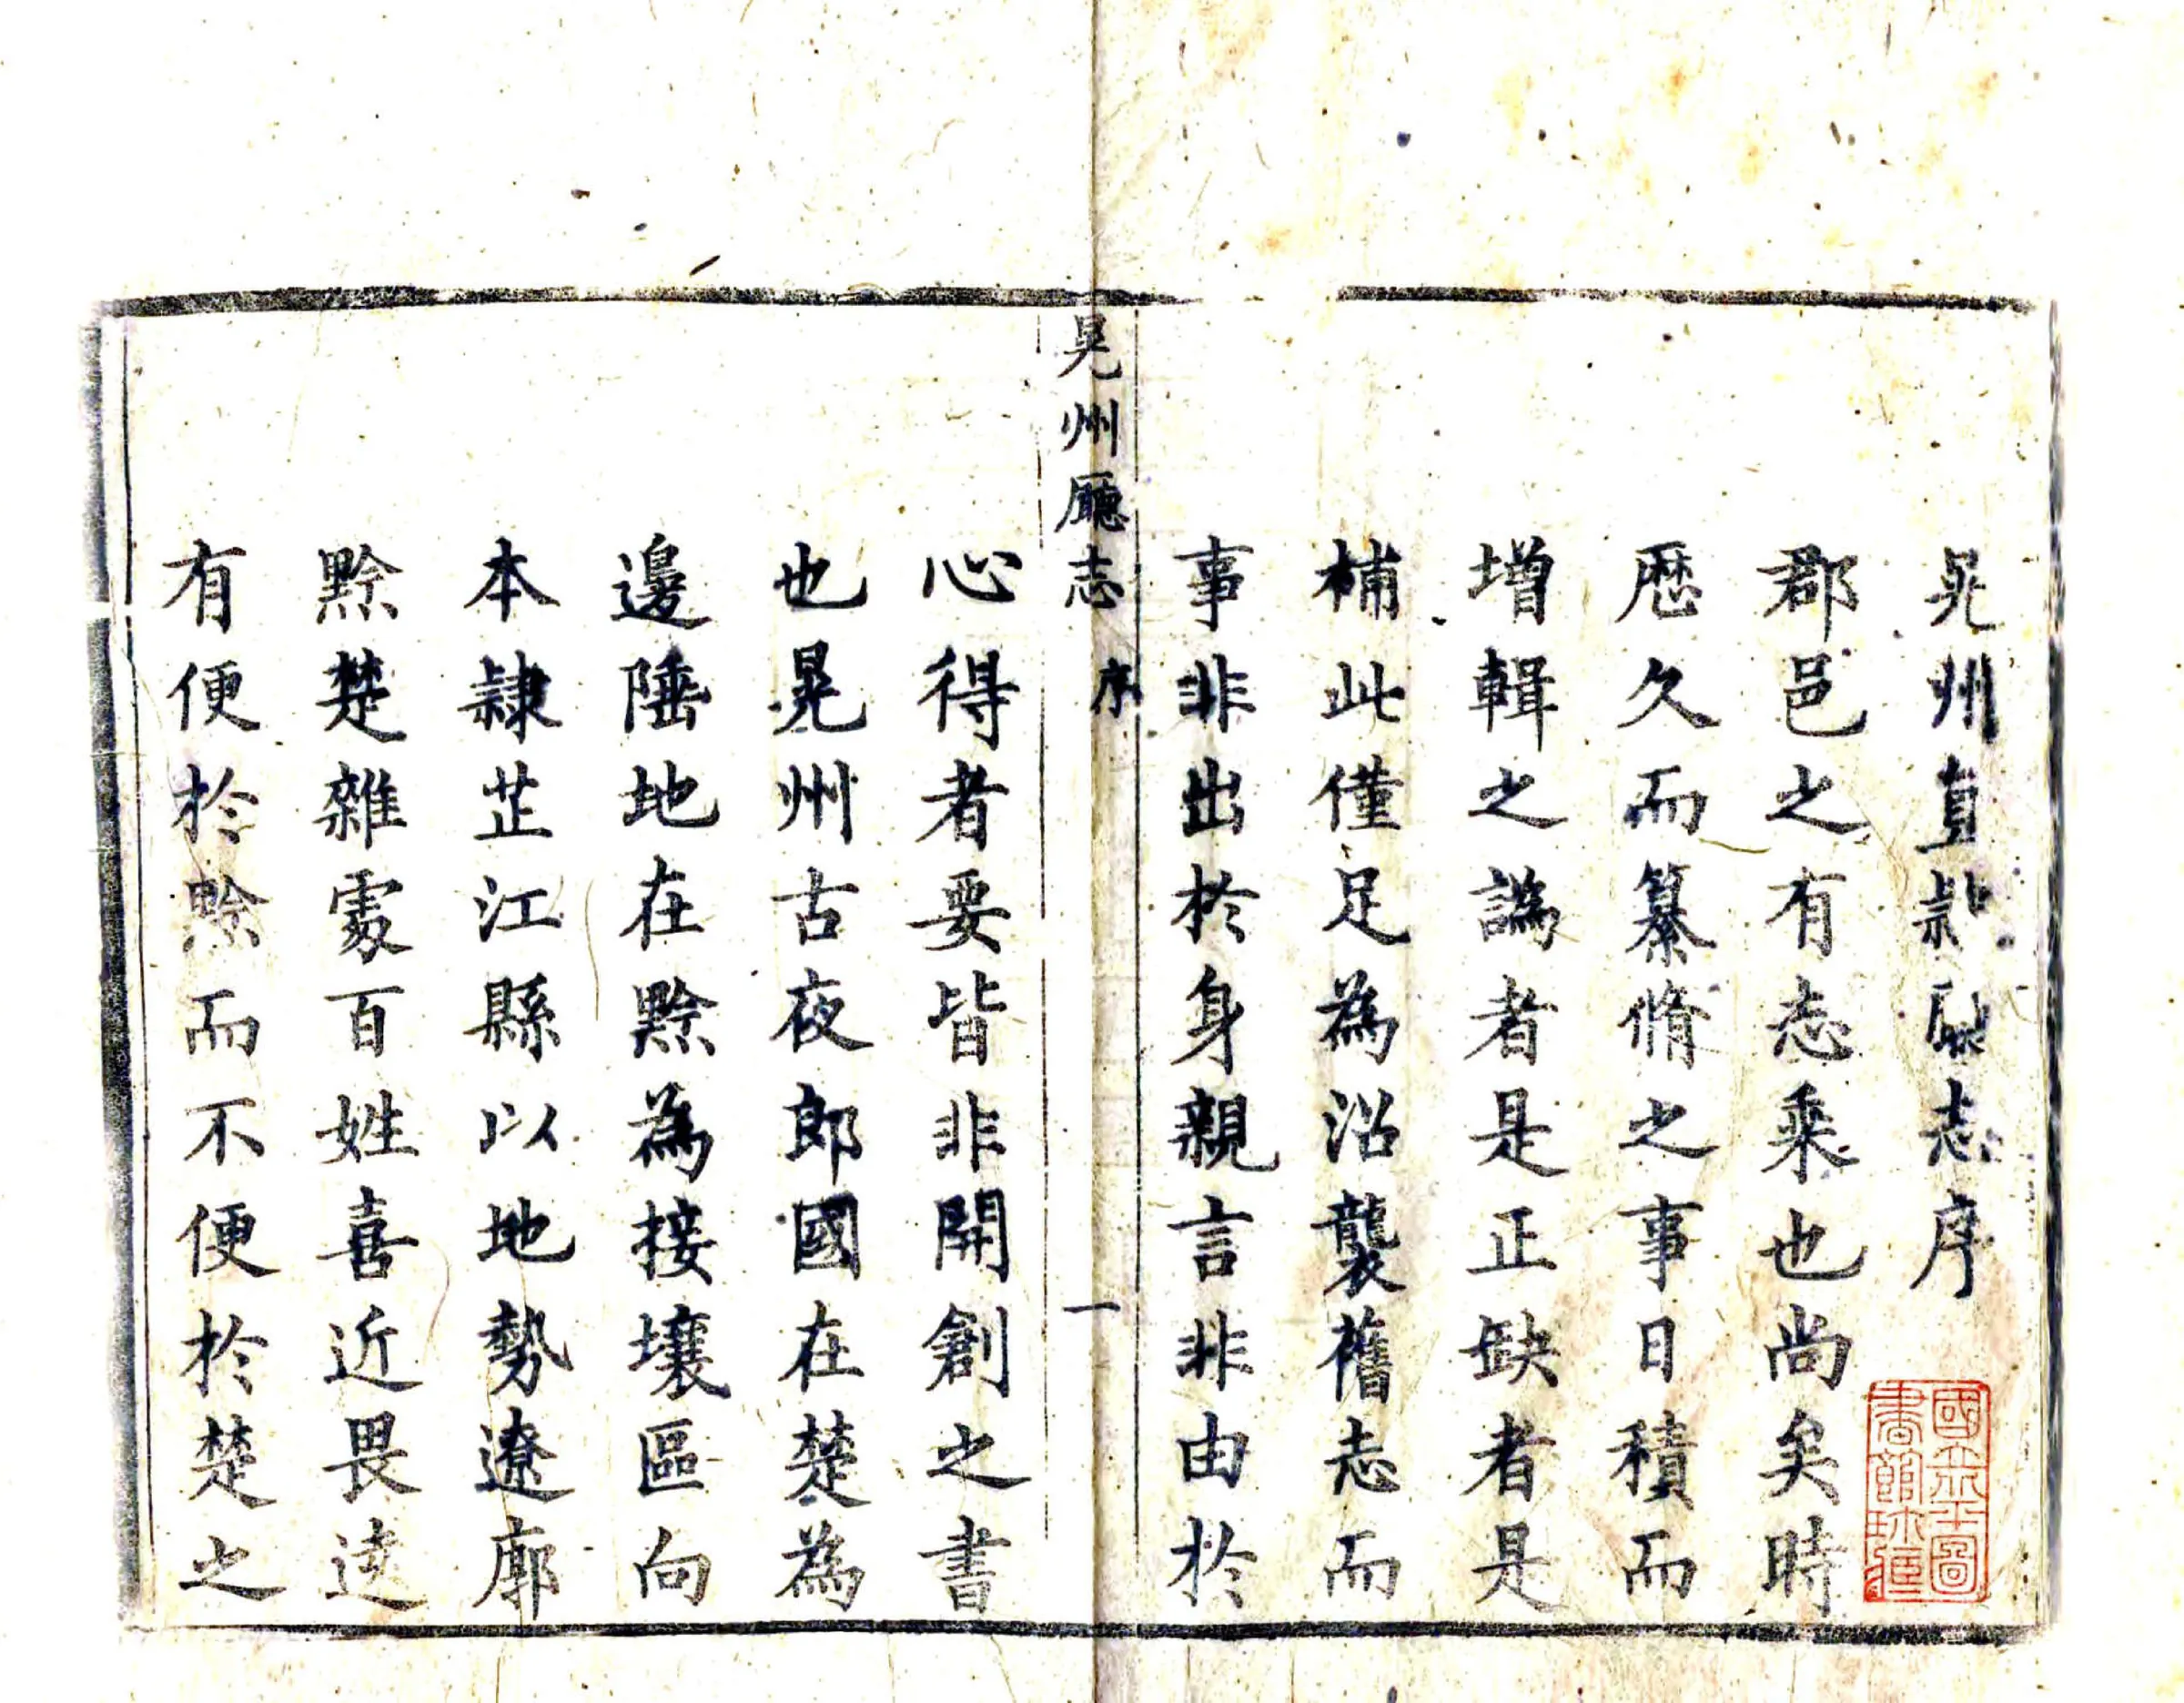 晃州直隸廳志序
郡邑之有志乘也尚矣時
歷久而纂脩之事日積而
增輯之譌者是正缺者是
補此僅足為沿襲舊志而
事非出於身親言非由於
晃州廳志 序 一
心得者要皆非開創之書
也晃州古夜郎國在楚為
邊陲地在黔為接壤區向
本隷芷江縣以地勢遼廓
黔楚雜處百姓喜近畏遠
有便於黔而不便於楚之
國立北平圖
書館珍藏